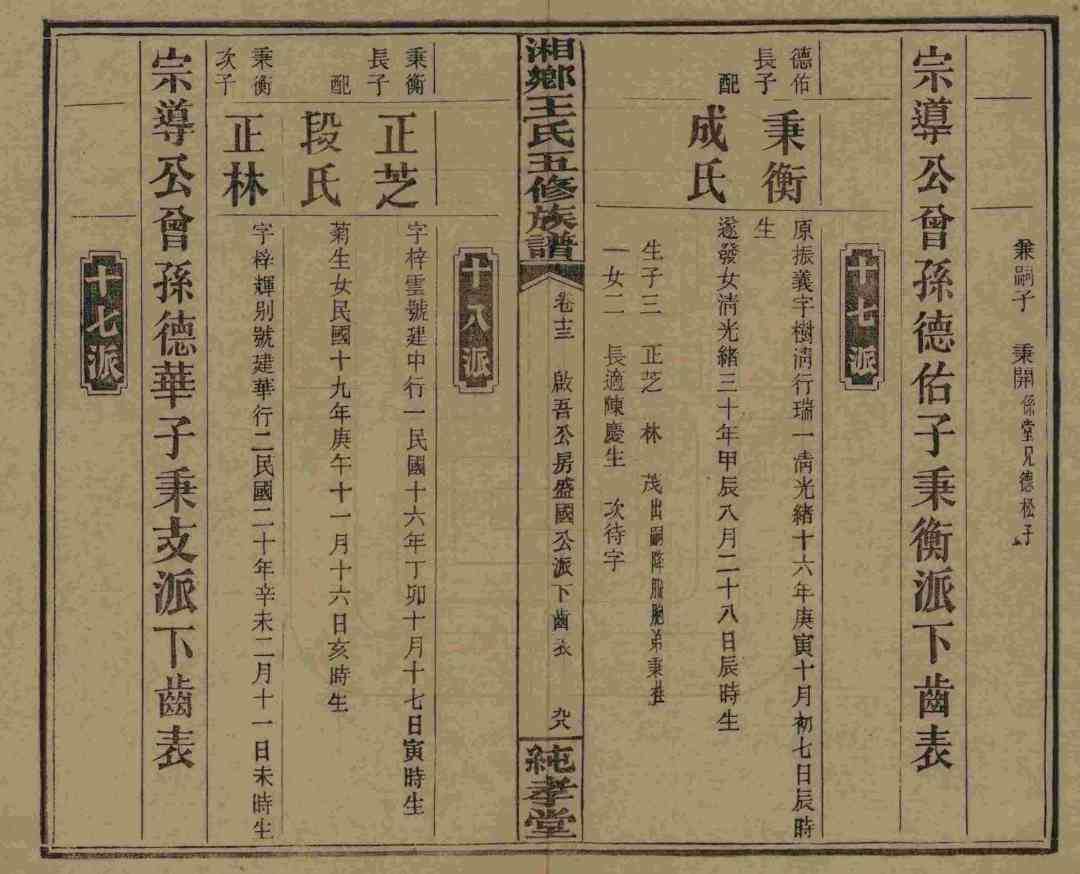 兼嗣子 秉開係堂兄德松子
宗導公曾孫德佑子秉衡派下齒表
十七派
德佑長子
秉衡
原振義字樹清行瑞一清光緒十六年庚寅十月初七日辰時生
配
成氏
遂發女清光緒三十年甲辰八月二十八日辰時生
生子三 正芝 林 茂出嗣降服胞弟秉
一女二 長適陳慶生 次待字
湘鄉王氏五修族譜
卷十三 啟吾公房盛國公派下齒表 九八
純孝堂
十八派
秉衡長子
正芝
字梓雲號建中行一民國十六年丁卯十月十七日寅時生
配
段氏
菊生女民國十九年庚午十一月十六日亥時生
秉衡次子
正林
字梓輝别號建華行二民國二十年辛未二月十一日未時生
宗導公曾孫德華子秉支派下齒表
十七派